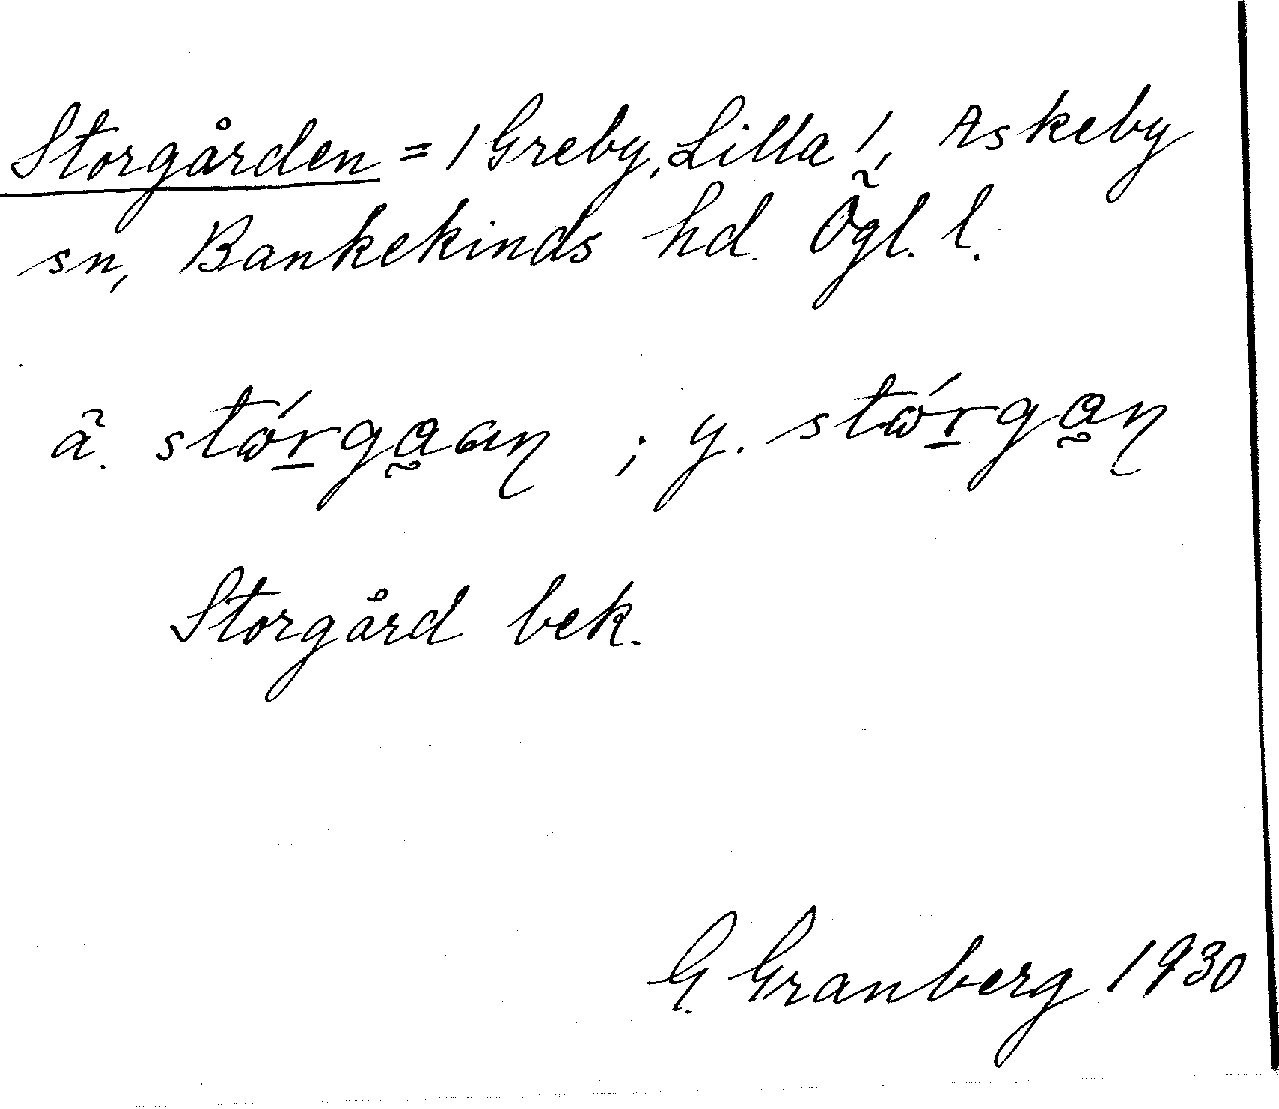 Storgården = / Greby, Lilla /, Askeby
sn, Bankekinds hd. Ögl. l.
ä. stórgaan ; y. stórgan
Storgård bek.
G. Granberg 1930